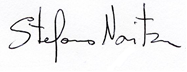 Stefano Naitza